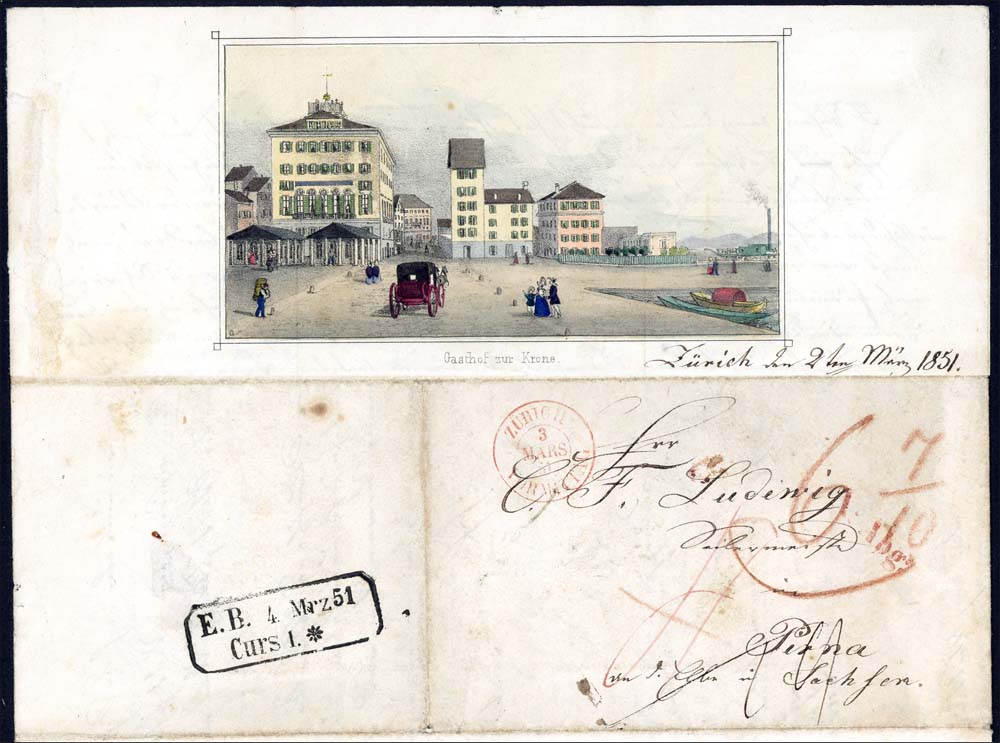 Gasthof zur Krone.
Zürich den 2ten März 1851.
ZÜRICH
3
MARS
51
VORMITTAG
Herr
C. F. Ludewig
Seilermeister
in
Pirna
an d. Elbe in Sachsen.
6
7
10
E.B. 4. Mrz 51
Curs I. *